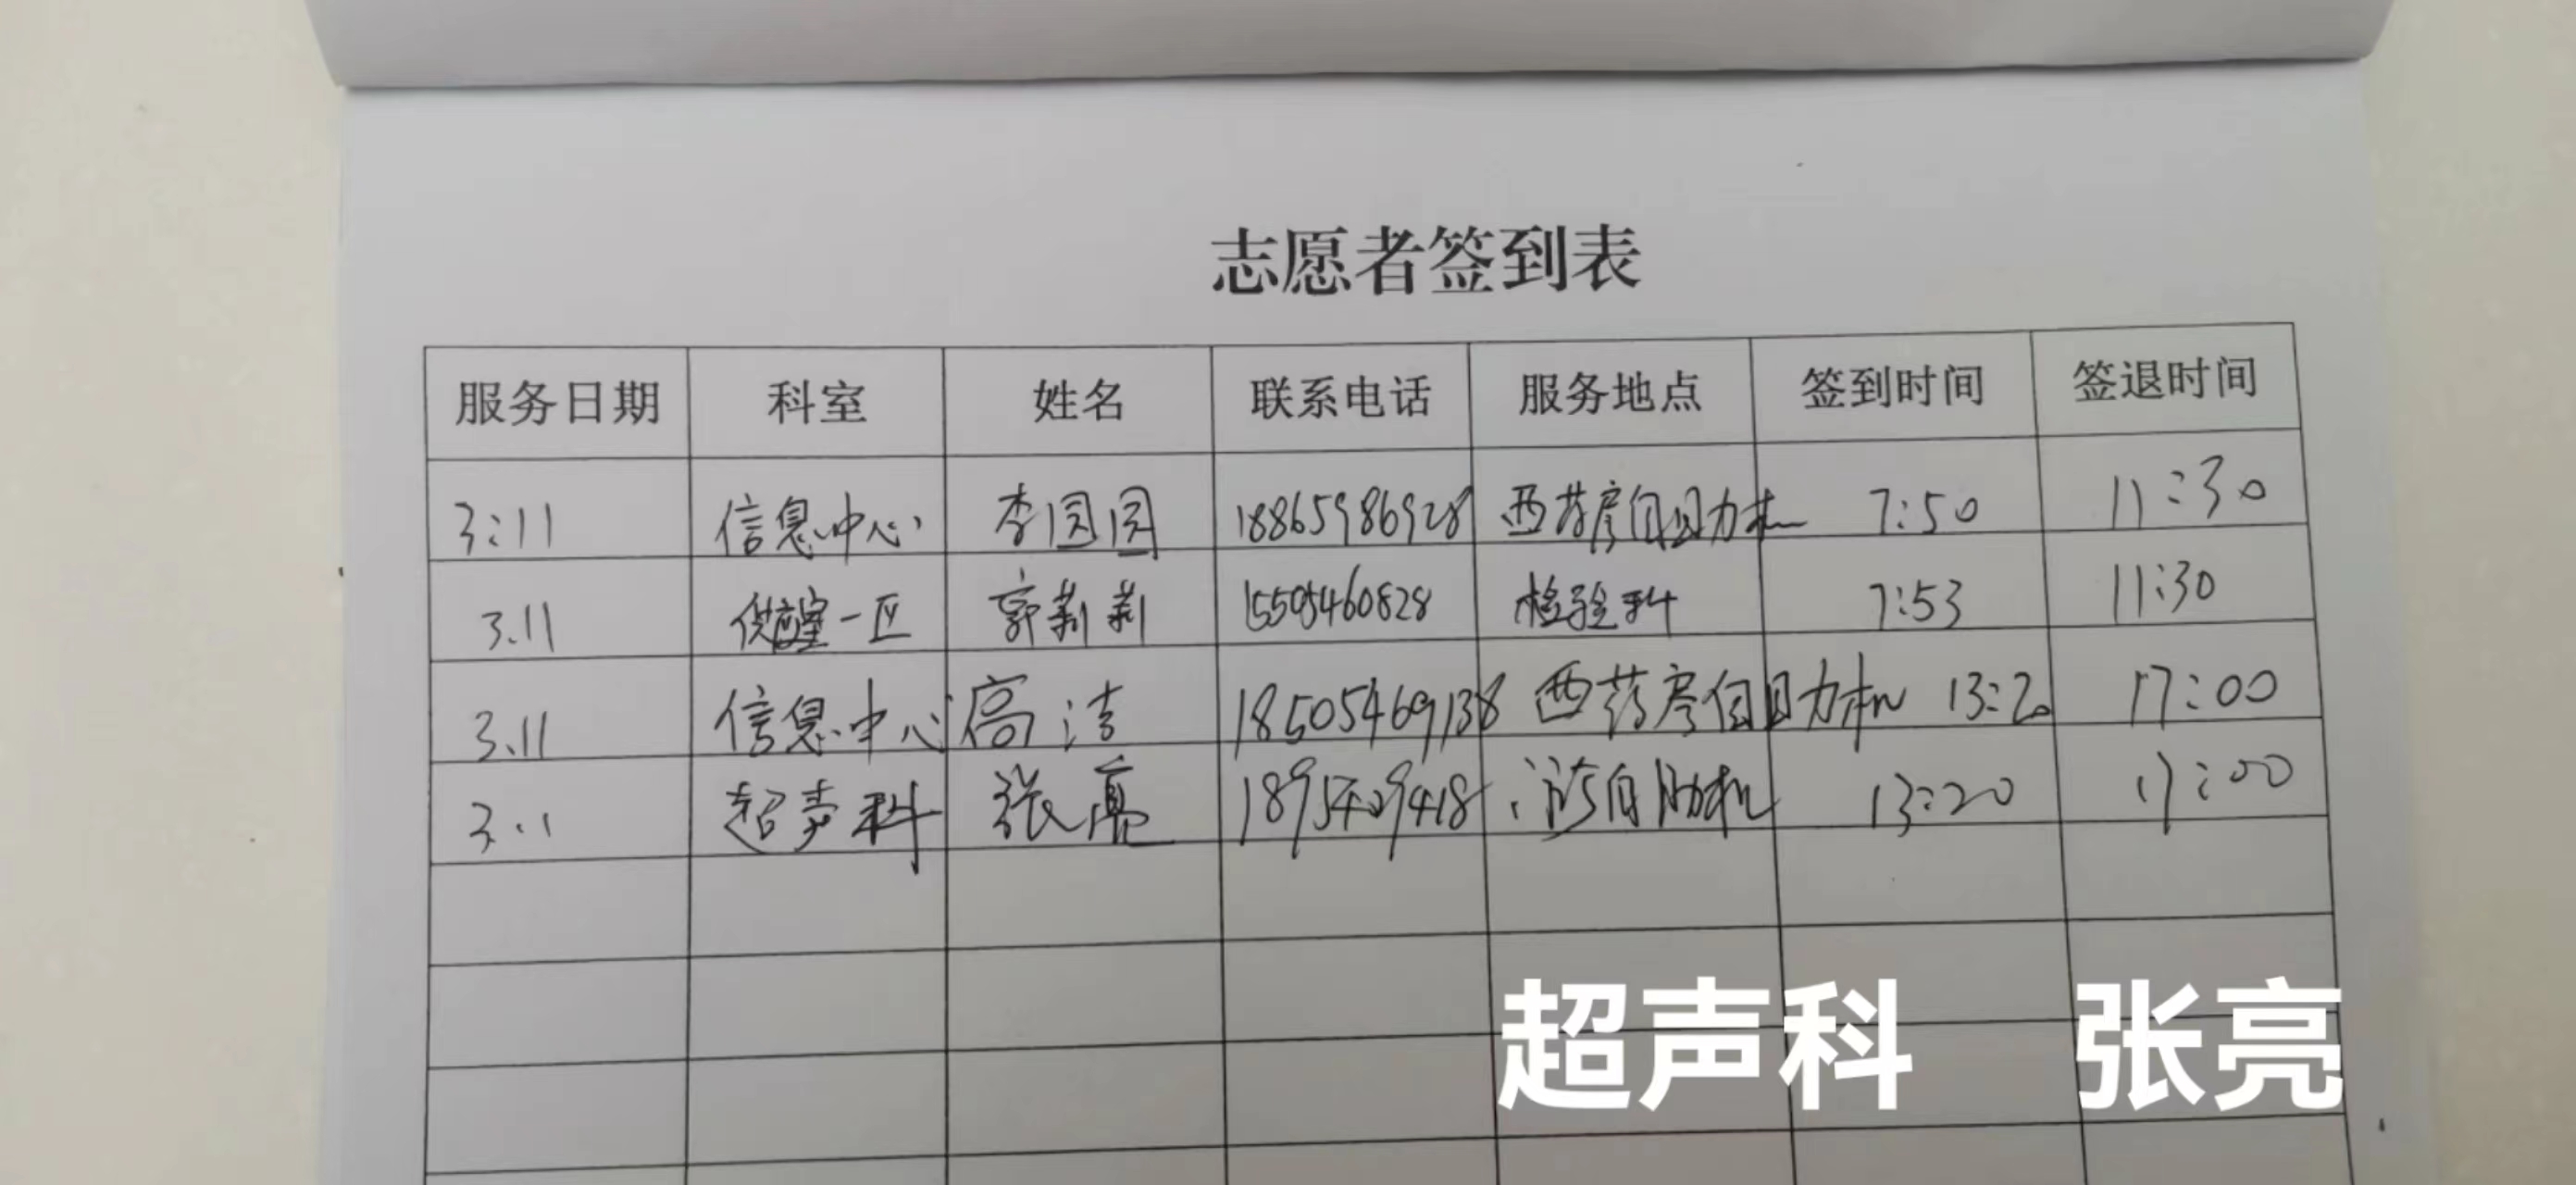 志愿者签到表
服务日期 科室 姓名 联系电话 服务地点 签到时间 签退时间
3:11 信息中心 李圆圆 18865986928 西药房自助机 7:50 11:30
3.11 一区 郭莉莉 15505460828 检验科 7:53 11:30
3.11 信息中心 高洁 18505469138 西药房自助机 13:20 17:00
3.11 超声科 张亮 自助机 13:20 17:00
超声科 张亮